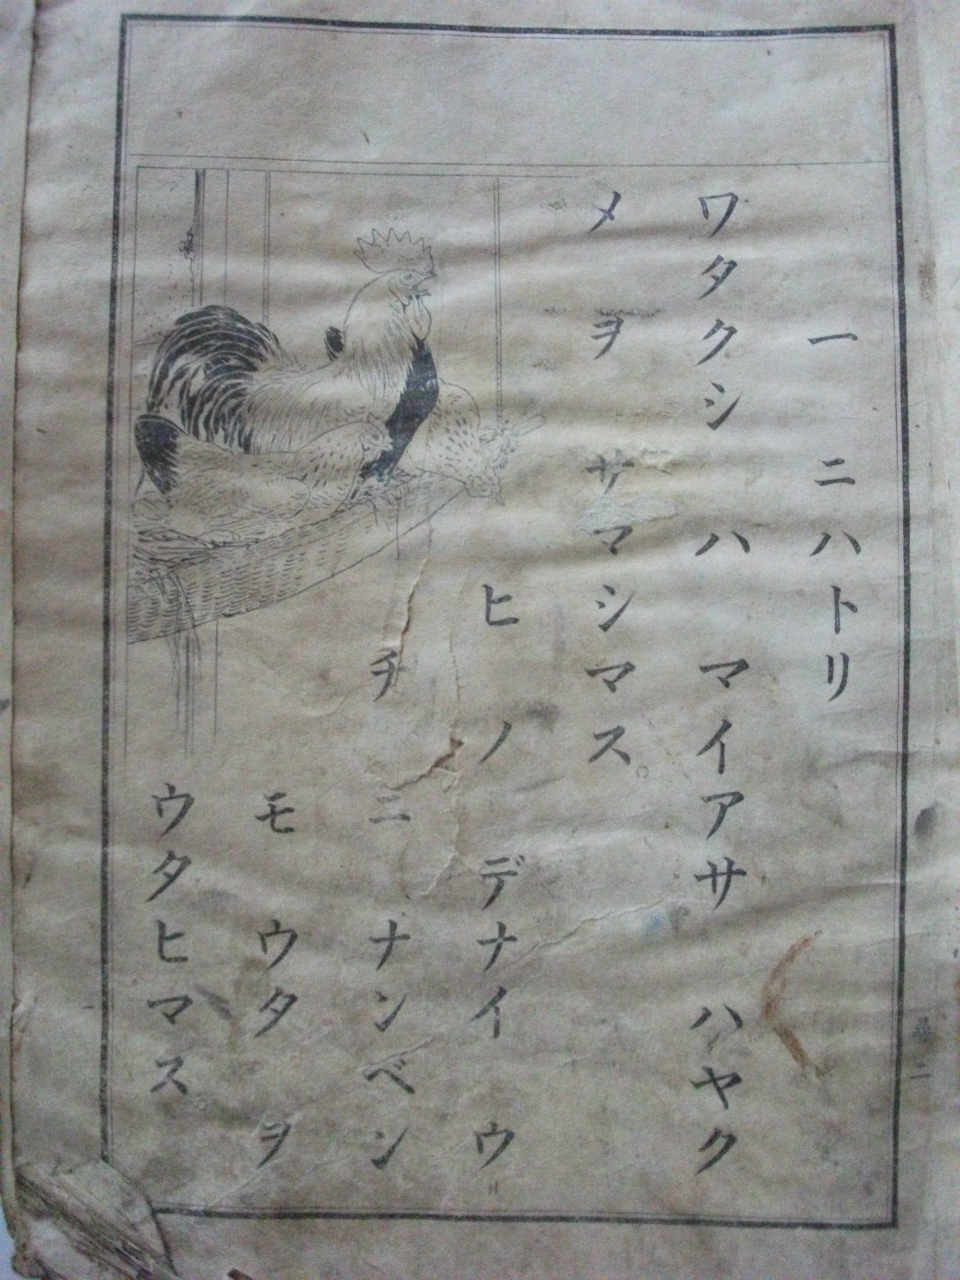 一 ニハトリ
ワタクシ ハ マイアサ ハヤク
メ ヲ サマシマス。
ヒ ノ デナイ ウ
チ ニ ナンベン
モ ウタ ヲ
ウタヒマス。